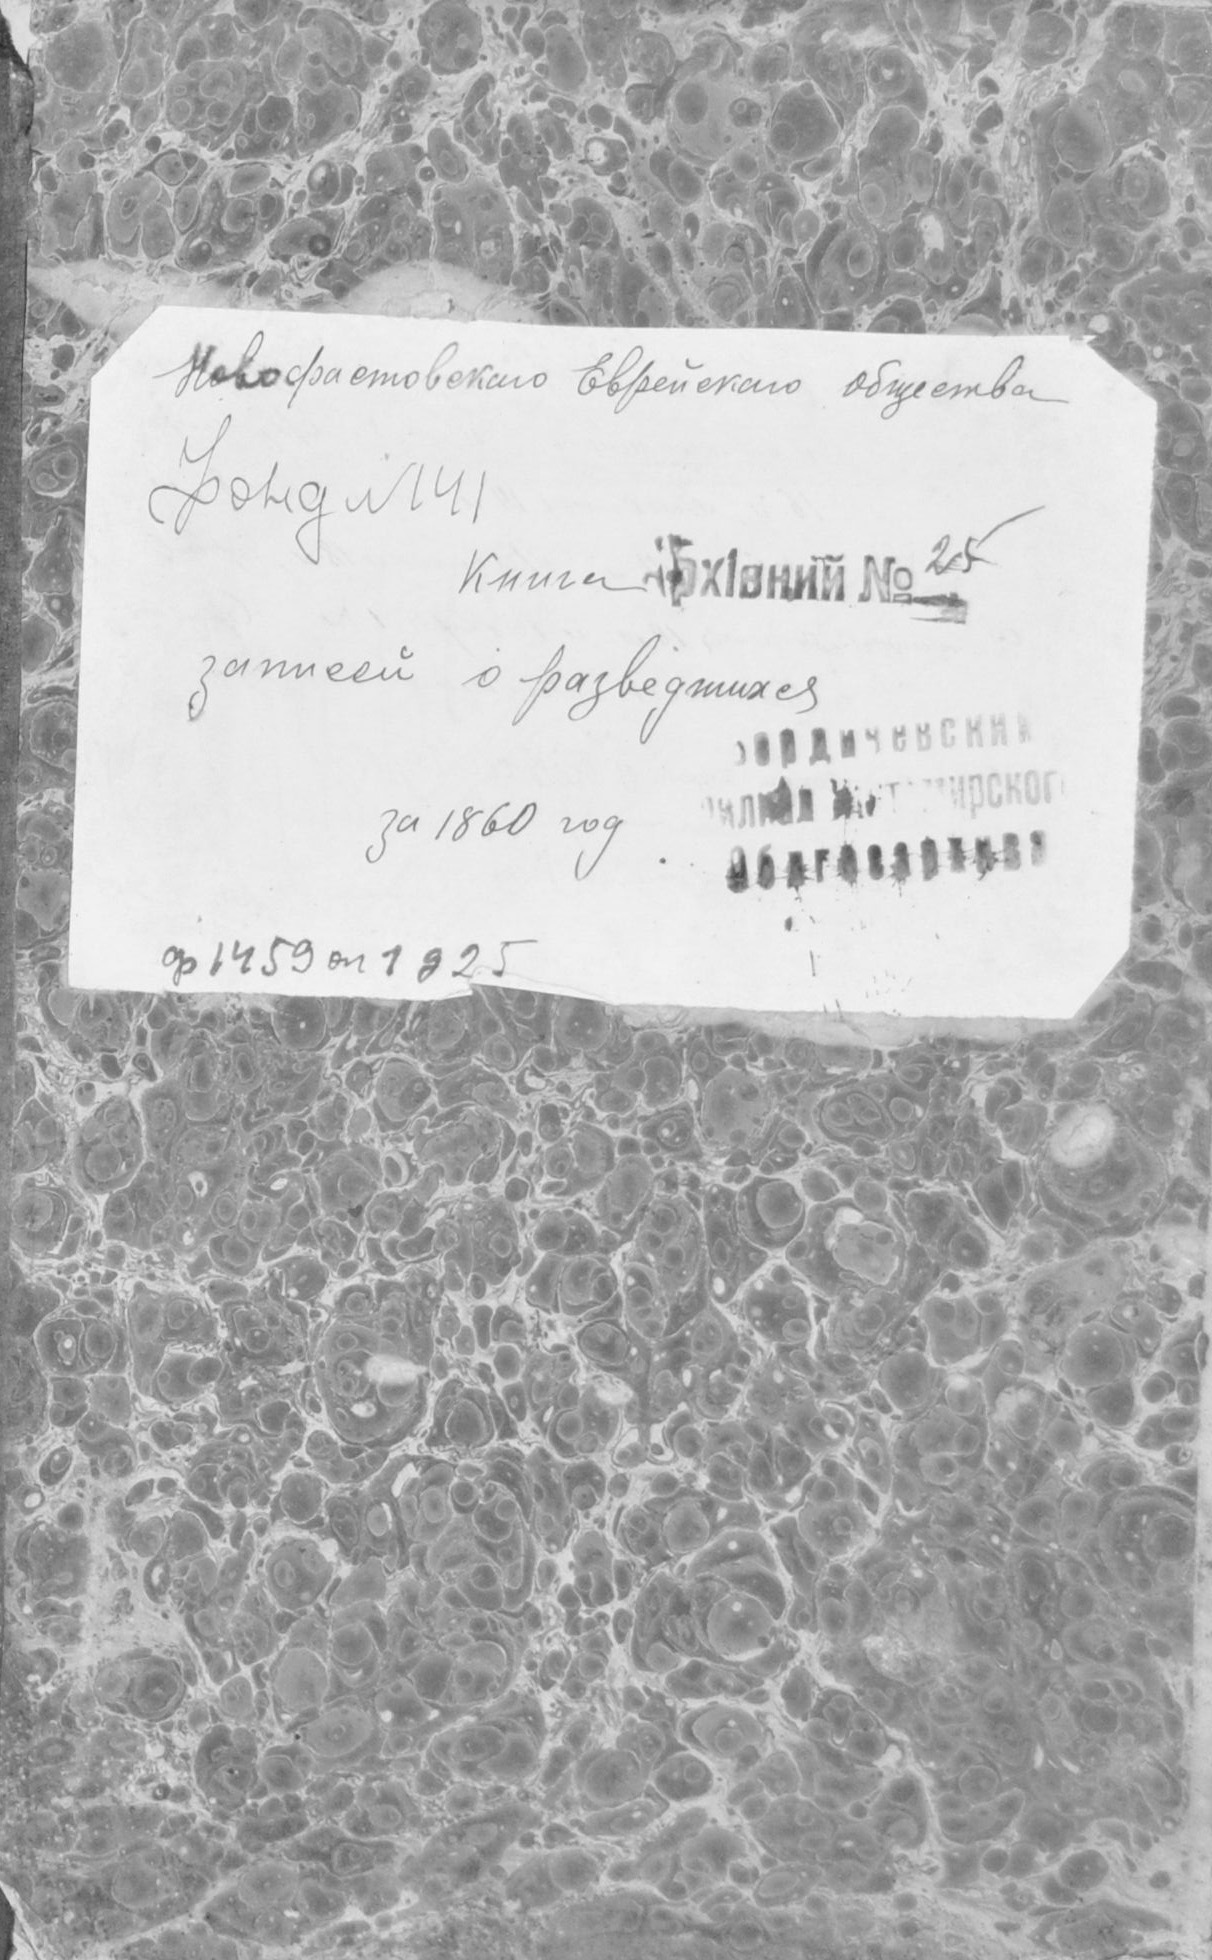 Новофастовскаго Еврейскаго общества
Фонд №141
Книга Архівний № 25
записей о разведшихся
Бердичевский
филиал Житомирского
Облгосархива
за 1860 год
ф 1459 оп 1 д 25